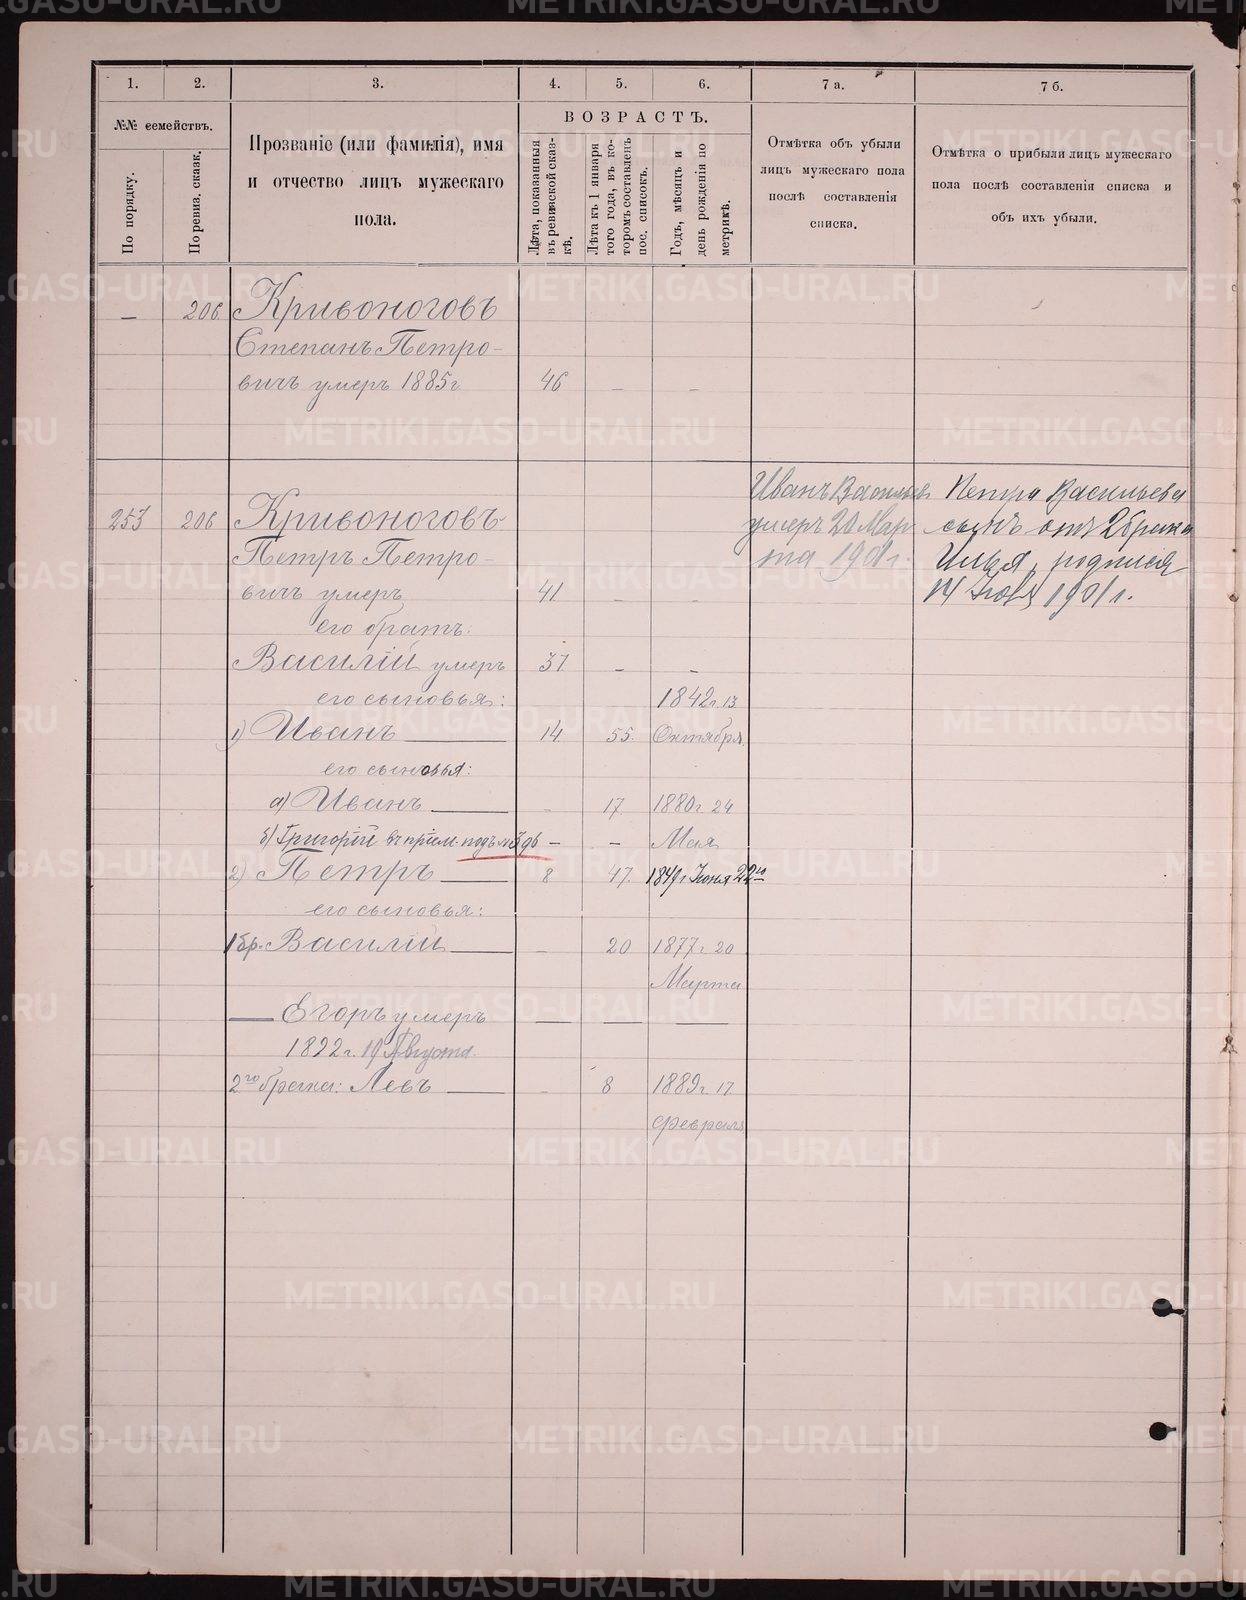 1.
2.
3.
4.
5.
6.
7 а.
7 б.
№№ семействъ.
По порядку.
По ревиз. сказк.
Прозваніе (или фамилія), имя
и отчество лицъ мужескаго
пола.
ВОЗРАСТЪ.
Лѣта, показанныя
въ ревизской сказ-
кѣ.
Лѣта къ 1 января
того года, въ ко-
торомъ составленъ
пос. списокъ.
Годъ, мѣсяцъ и
день рожденія по
метрикѣ.
Отмѣтка объ убыли
лицъ мужескаго пола
послѣ составленія
списка.
Отмѣтка о прибыли лицъ мужескаго
пола послѣ составленія списка и
объ ихъ убыли.
— 206 Кривоноговъ
Степанъ Петро-
вичъ умеръ 1885 г. 46 — —
253 206 Кривоноговъ
Петръ Петро-
вичъ умеръ 41 — —
его братъ:
Василій умеръ 37 — —
его сыновья: 1842 г. 13
1) Иванъ 14 55. Октября
его сыновья:
а) Иванъ — 17 1880 г. 24
Мая
б) Григорій въ прием. подъ № — —
2) Петръ 8 47. 1849 г. Іюня 22го
его сыновья:
1 бр. Василій — 20 1877 г. 20
Марта
— Егоръ умеръ — — —
1892 г. 19 Августа.
2го брака: Левъ — 8 1889 г. 17.
Февраля
Иванъ Васильев
умеръ 20 Мар
та 1901 г.
Петра Васильева
сынъ отъ 2 брака
Илья, родился
14 1901 г.
METRIKI.GASO-URAL.RU